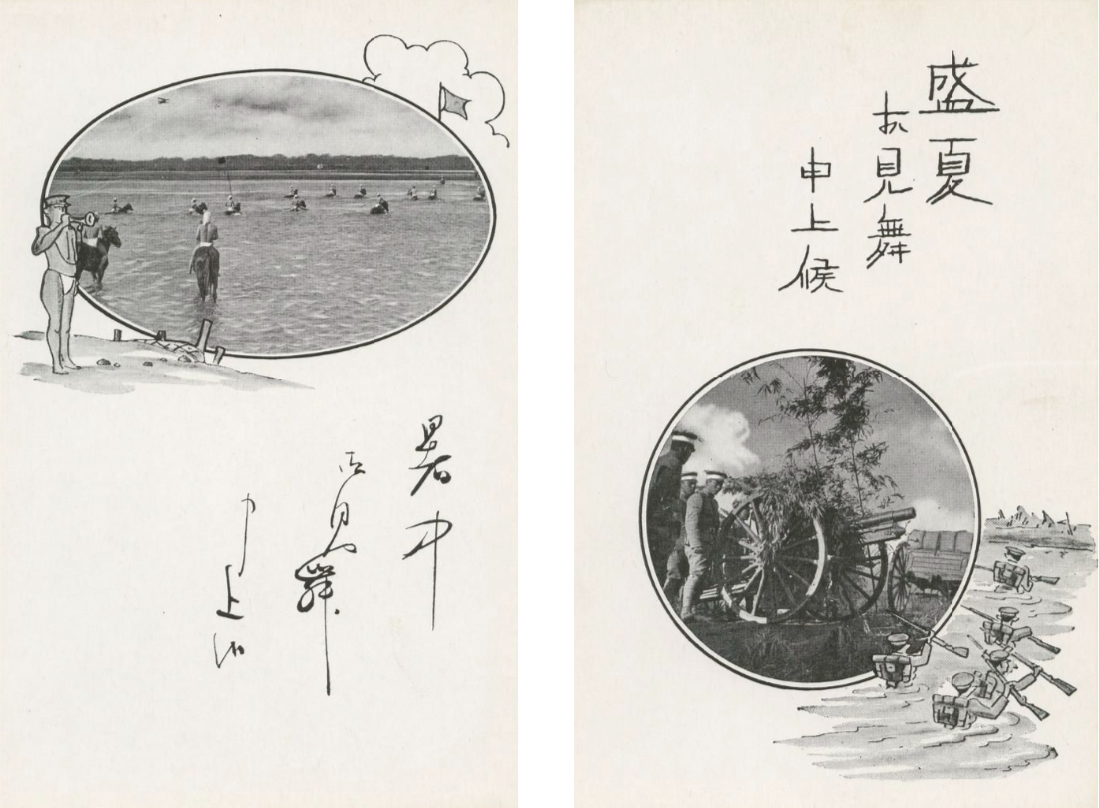 暑中
お見舞
申上候
盛夏
お見舞
申上候